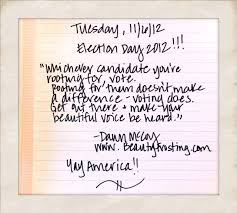 Tuesday, 11/6/12
Election Day 2012!!!
"Whichever candidate you're
rooting for, vote.
Rooting for them doesn't make
a difference - voting does.
Get out there + make your
beautiful voice be heard."
- Dawn McCoy
www.BeautyFrosting.com
Yay America!!